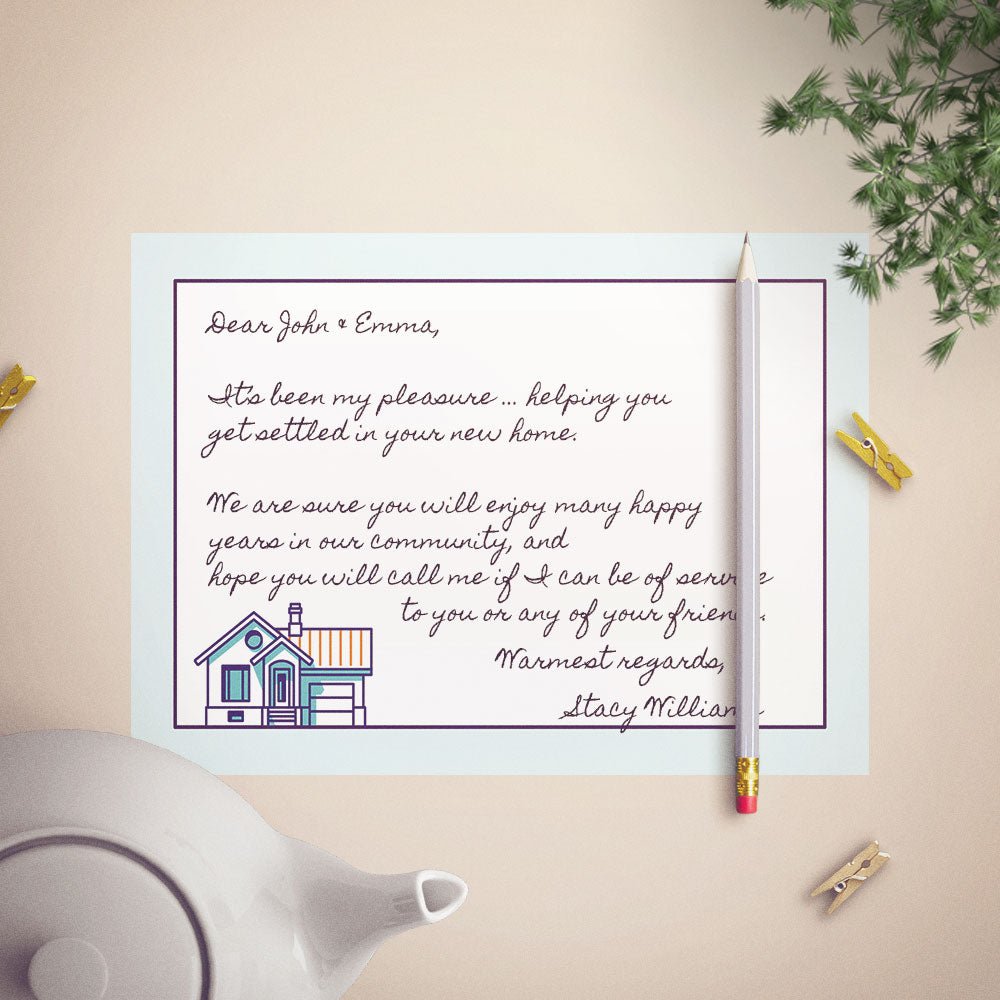 Dear John & Emma,
It's been my pleasure ... helping you
get settled in your new home.
We are sure you will enjoy many happy
years in our community, and
hope you will call me if I can be of service
to you or any of your friends.
Warmest regards,
Stacy Williams